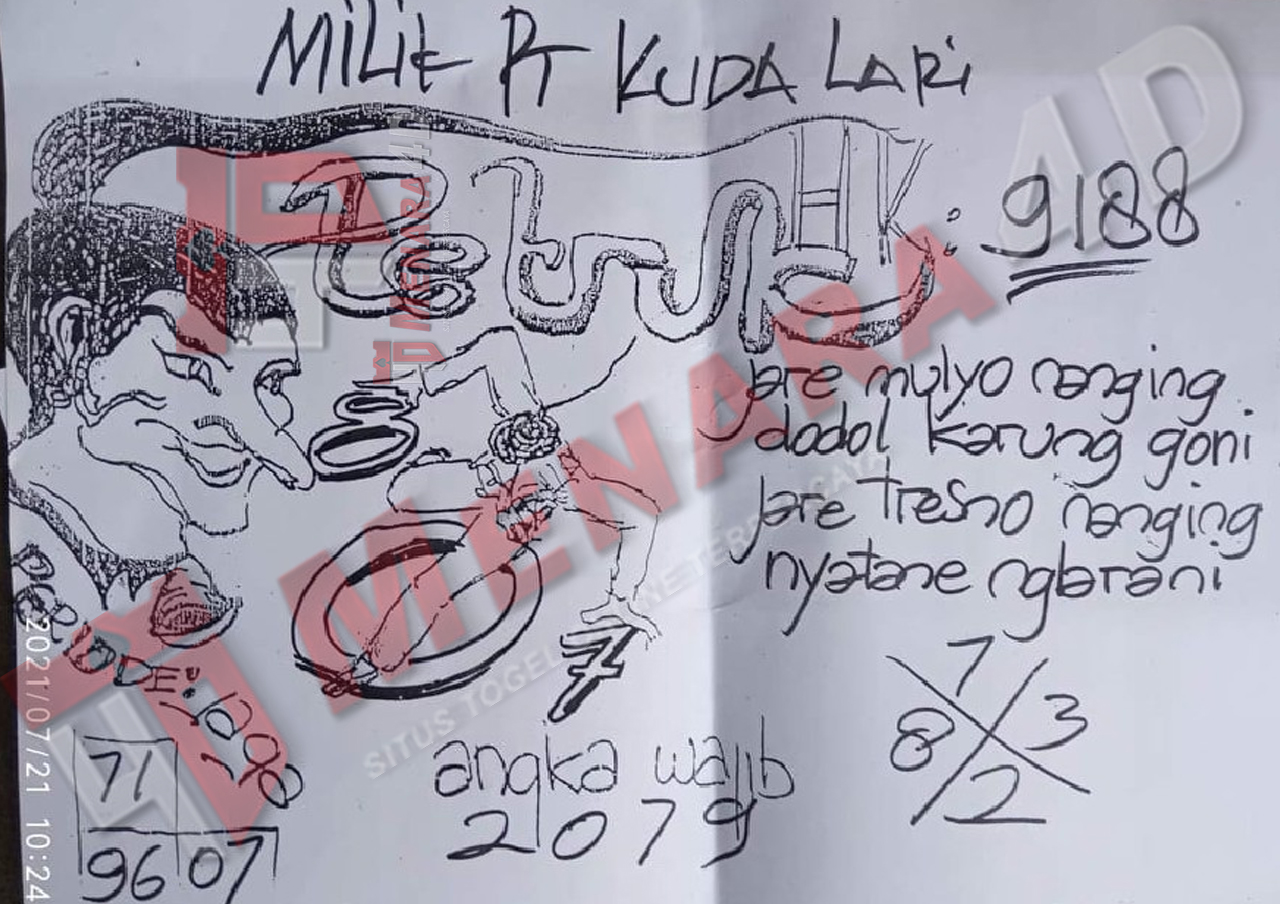 MiLiK PT KUDA LARi
Petruk : 9188
jare mulyo nanging
dodol karung goni
jare tresno nanging
nyatane nglarani
7
8 3
2
7
angka wajib
2079
71
96 07
MENARA 4D
2021/07/21 10:24